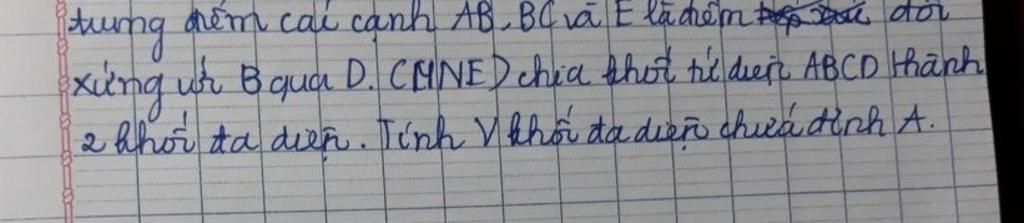 trung điểm các cạnh AB, BC và E là điểm đối
xứng với B qua D. (MNE) chia khối tứ diện ABCD thành
2 khối đa diện. Tính V khối đa diện chứa đỉnh A.